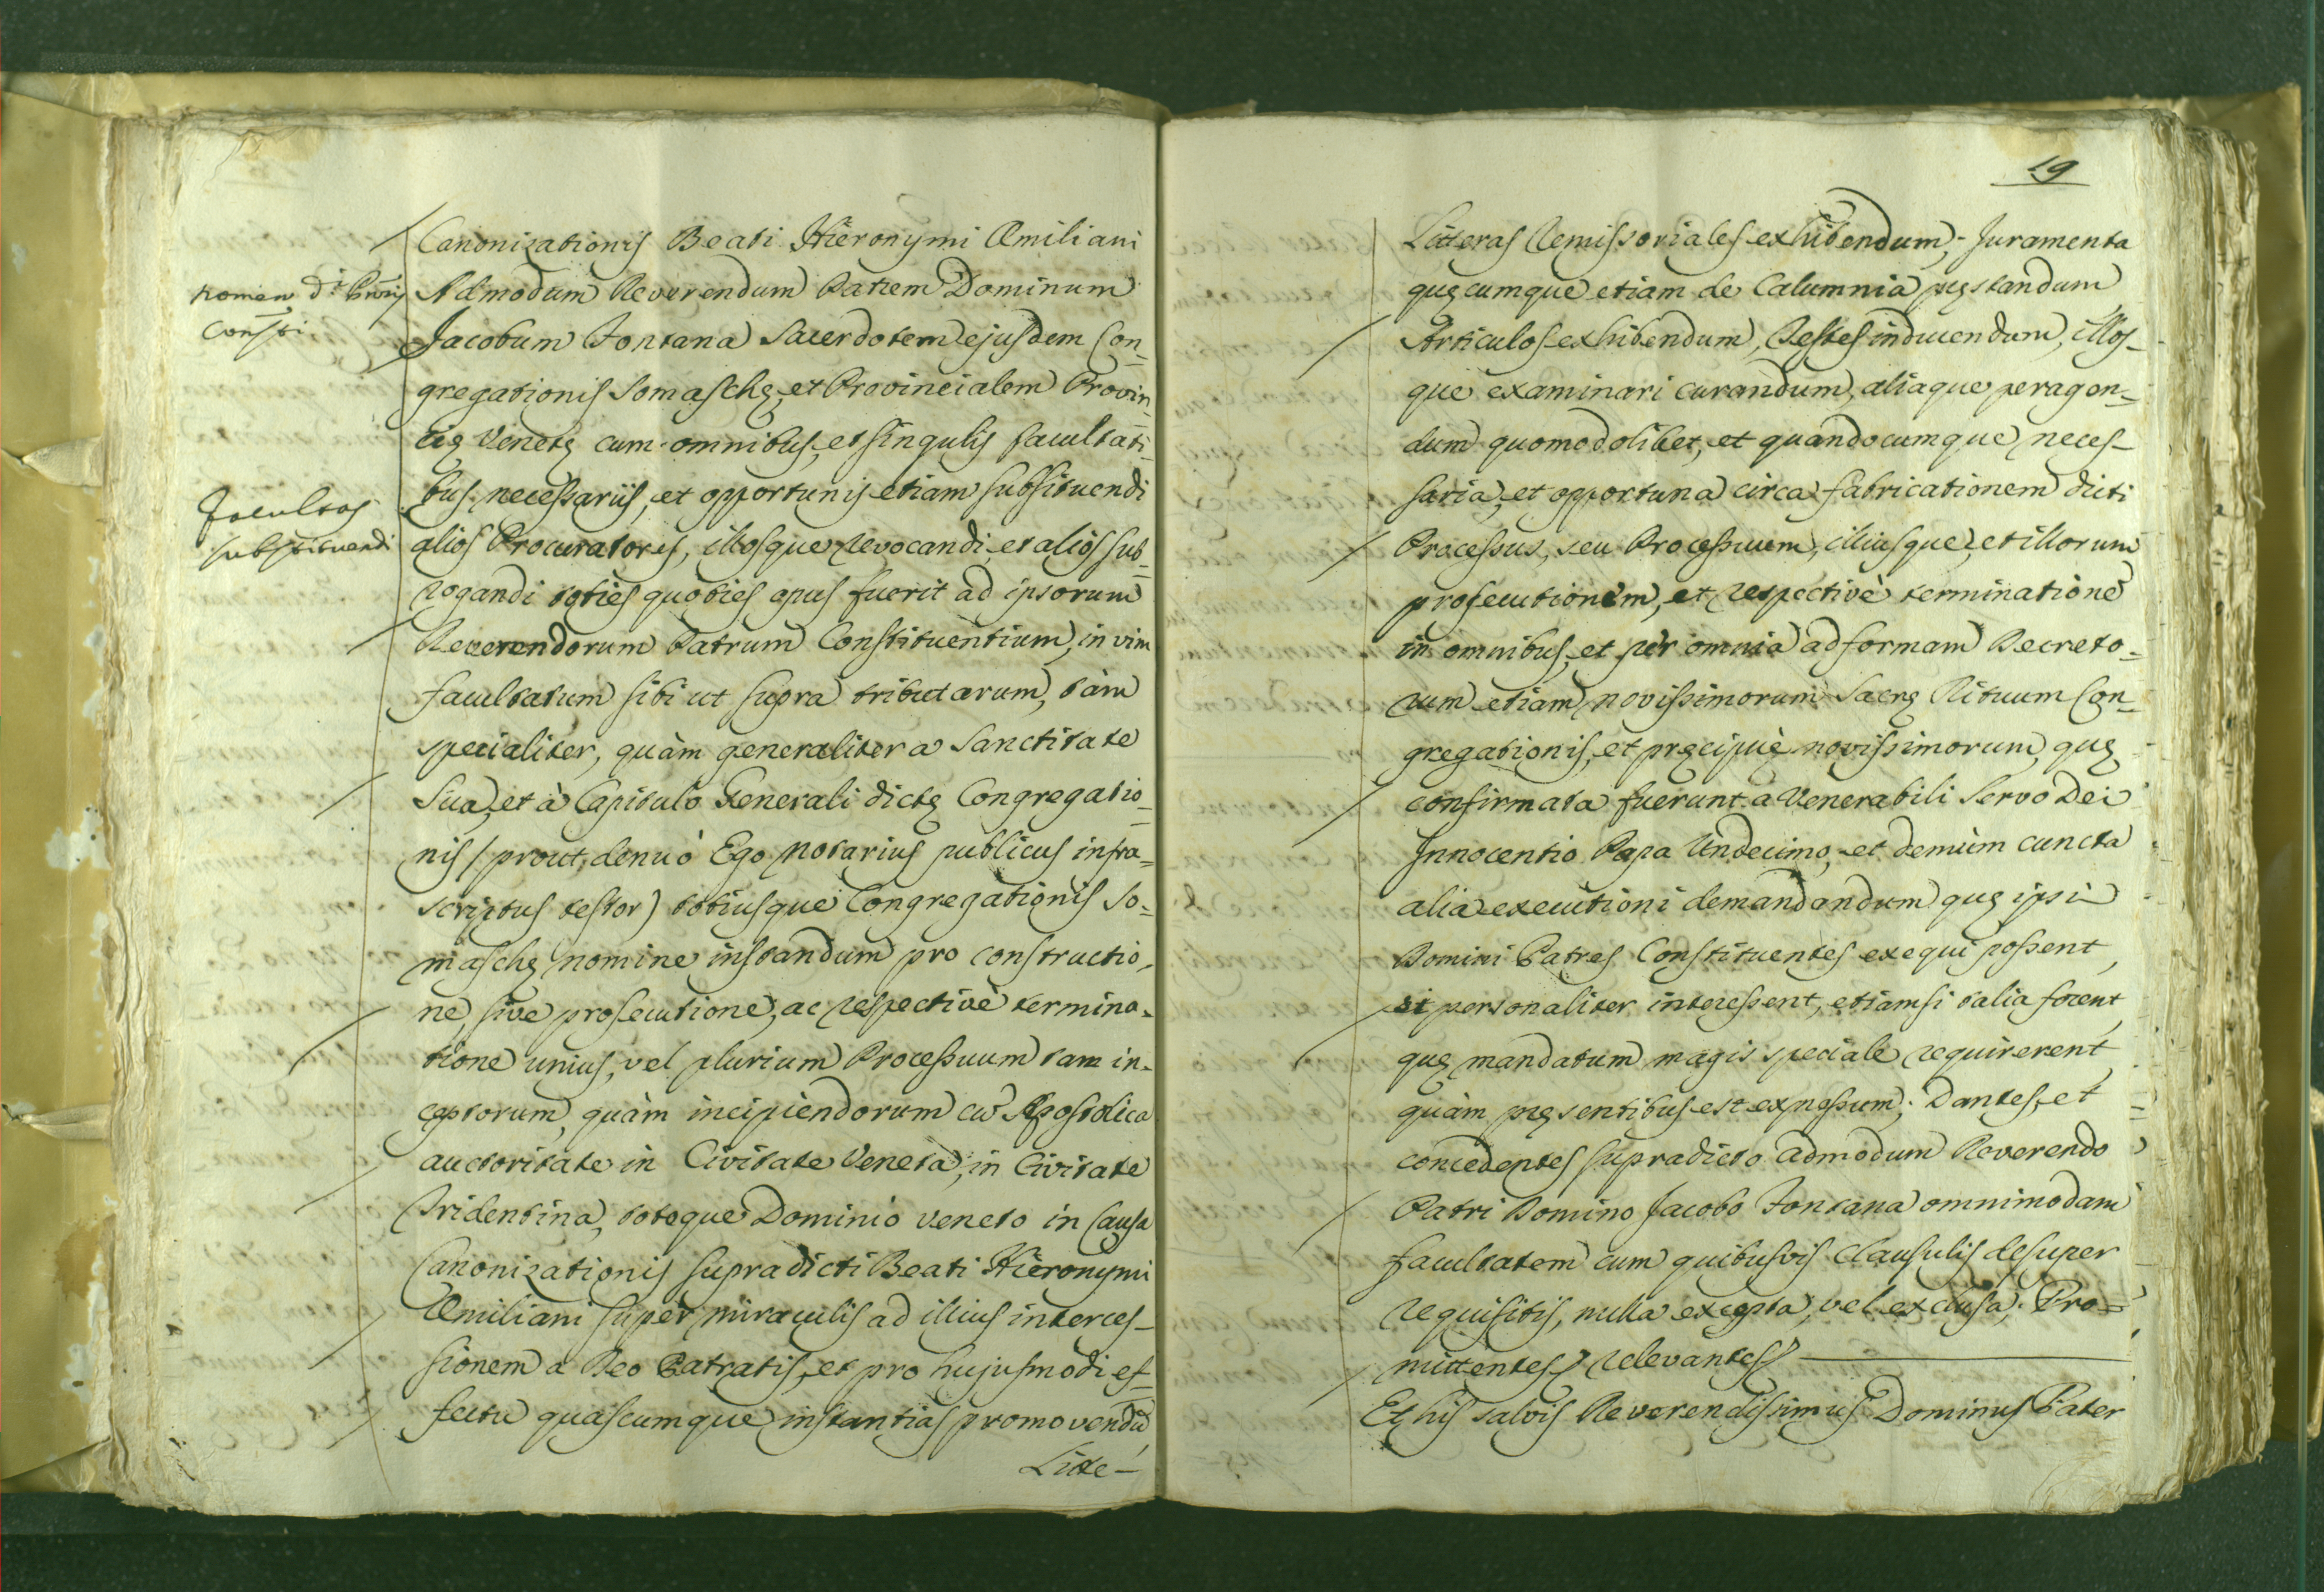 Canonizationis Beati Hieronymi Æmiliani
nomen d.
Admodum Reverendum Patrem Dominum
Consti
Jacobum Fontana Sacerdotem ejusdem Con_
gregationis Somaschę, et Provincialem Provin_
cię Venetę cum omnibus, et singulis facultati_
bus necessariis, et opportunis etiam substituendi
facultas
substituendi
alios Procuratores, illosque revocandi, et alios sub_
rogandi toties quoties opus fuerit ad ipsorum
Reverendorum Patrum Constituentium, in vim
facultatum sibi ut supra tributarum, tàm
specialiter, quàm generaliter a Sanctitate
Sua, et à Capitulo Generali dictę Congregatio_
nis / prout denuò Ego Notarius publicus infra=
scriptus testor) totiusque Congregationis So=
maschę nomine instandum pro constructio_
ne, sive prosecutione, ac respectivè termina_
tione unius, vel plurium Processuum tam in_
ceptorum, quàm incipiendorum cū Apostolica
auctoritate in Civitate Veneta, in Civitate
Tridentina, totoque Dominio Veneto in Causa
Canonizationis supradicti Beati Hieronymi
Æmiliani super miraculis ad illius interces_
sionem a Deo Patratis, et pro hujusmodi ef_
fectu quascumque instantias promovendū,
Litte_
19
Litteras Remissoriales exhibendum, Juramenta
quęcumque etiam de Calumnia pręstandum
Articulos exhibendum, Testes inducendum, illos_
que examinari curandum, aliaque peragen_
dum quomodolibet, et quandocumque neces_
saria, et opportuna circa fabricationem dicti
Processus, seu Processuum, illiusque, et illorum
prosecutionem, et respectivè terminationē
in omnibus, et per omnia ad formam Decreto_
rum etiam novissimorum Sacrę Rituum Con_
gregationis, et pręcipuè novissimorum, quę
confirmata fuerunt a Venerabili Servo Dei
Innocentio Papa Undecimo, et demùm cuncta
alia executioni demandandum quę ipsi
Domini Patres Constituentes exequi possent,
si personaliter interessent, etiamsi talia forent,
quę mandatum magis speciale requirerent
quàm pręsentibus est expressum; Dantes, et
concedentes supradicto admodum Reverendo
Patri Domino Jacobo Fontana omnimodam
facultatem cum quibusvis Clausulis desuper
requisitis, nulla excepta, vel exclusa; Pro=
mittentes relevantes
Et his salvis Reverendissimus Dominus Pater